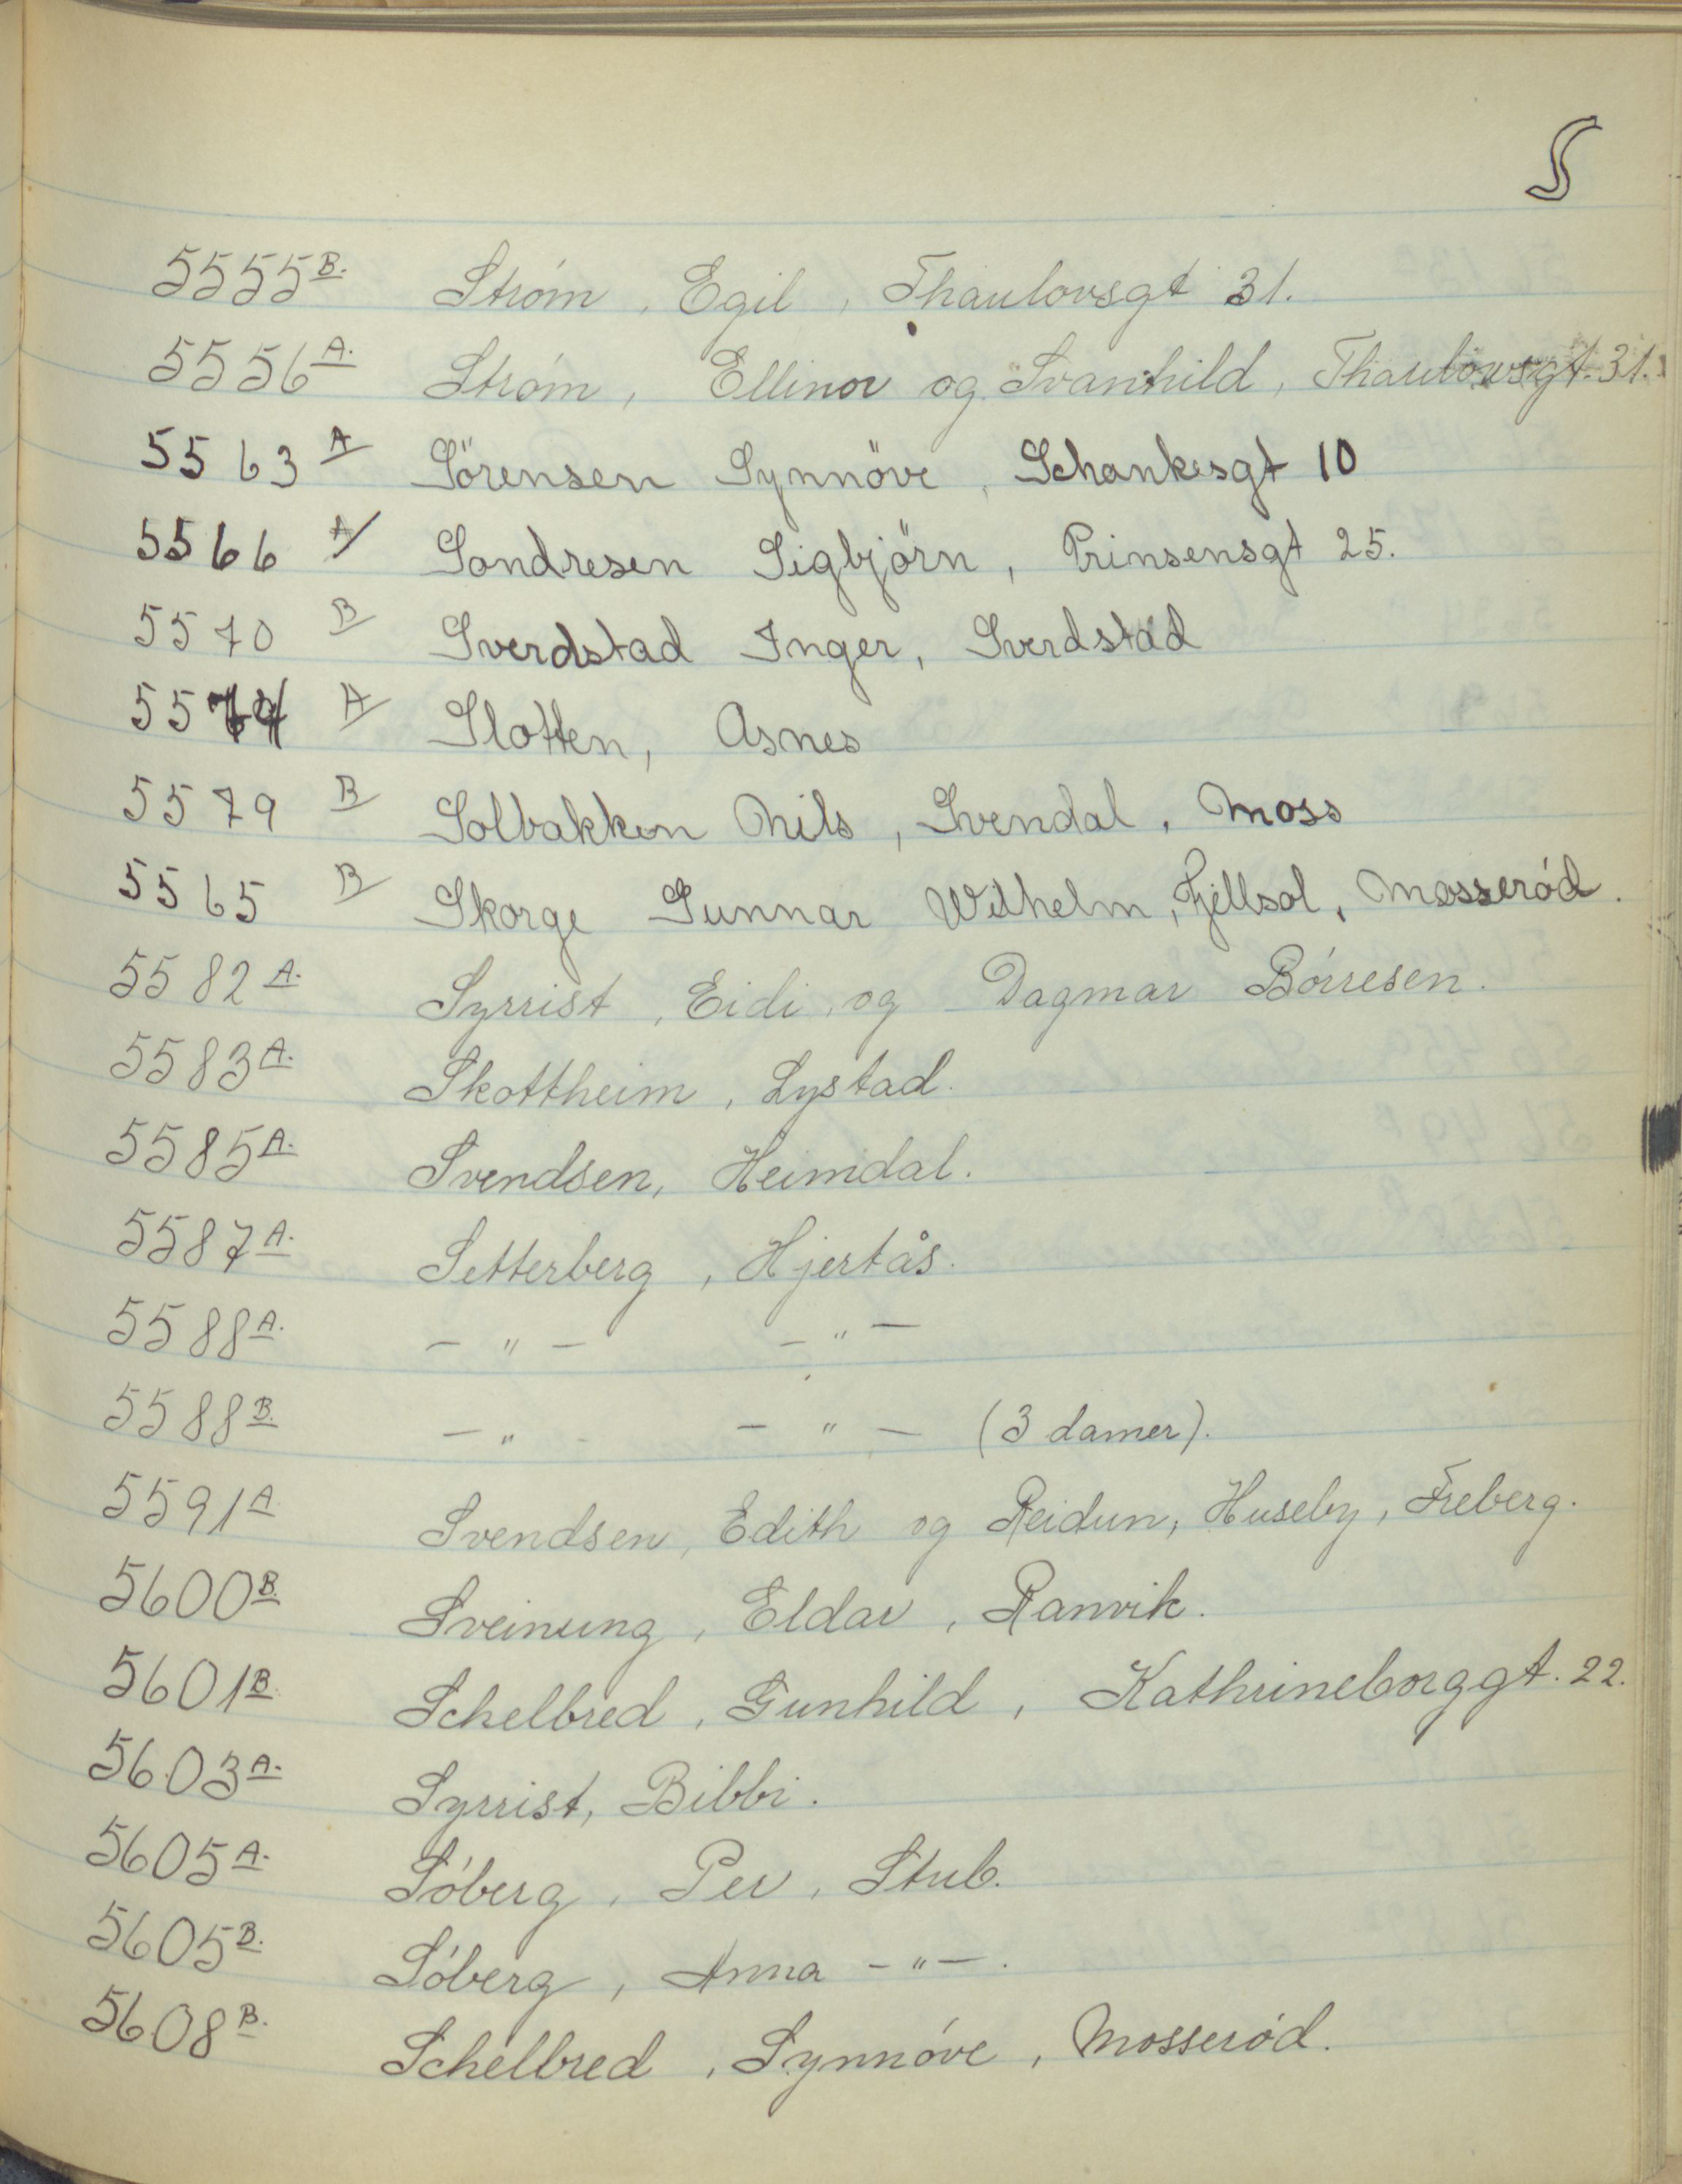 S
5555 B. Strøm, Egil, Thaulowsgt 31.
5556 A. Strøm, Ellinor og Svanhild, Thaulowsgt. 31.
5563 A Sörensen Synnöve, Schankesgt 10
5566 A Sondresen Sigbjörn, Prinsensgt 25.
5570 B Sverdstad Inger, Sverdstad
5574 A Slotten, Asnes
5579 B Solbakken Nils, Svendal, Moss
5565 B Skorge Gunnar Wilhelm, Fjellsol, Mosserød.
5582 A. Syrrist, Eidi, og Dagmar Børresen.
5583 A. Skottheim, Lystad.
5585 A. Svendsen, Heimdal.
5587 A. Setterberg, Hjertås.
5588 A. - " - - " -
5588 B. - " - - " - (3 damer).
5591 A. Svendsen, Edith og Reidun, Huseby, Freberg.
5600 B. Sveinung, Eldar, Ranvik.
5601 B. Schelbred, Gunhild, Kathrineborggt. 22.
5603 A. Syrrist, Bibbi.
5605 A. Søberg, Per, Stub.
5605 B. Søberg, Anna - " - .
5608 B. Schelbred, Synnøve, Mosserød.